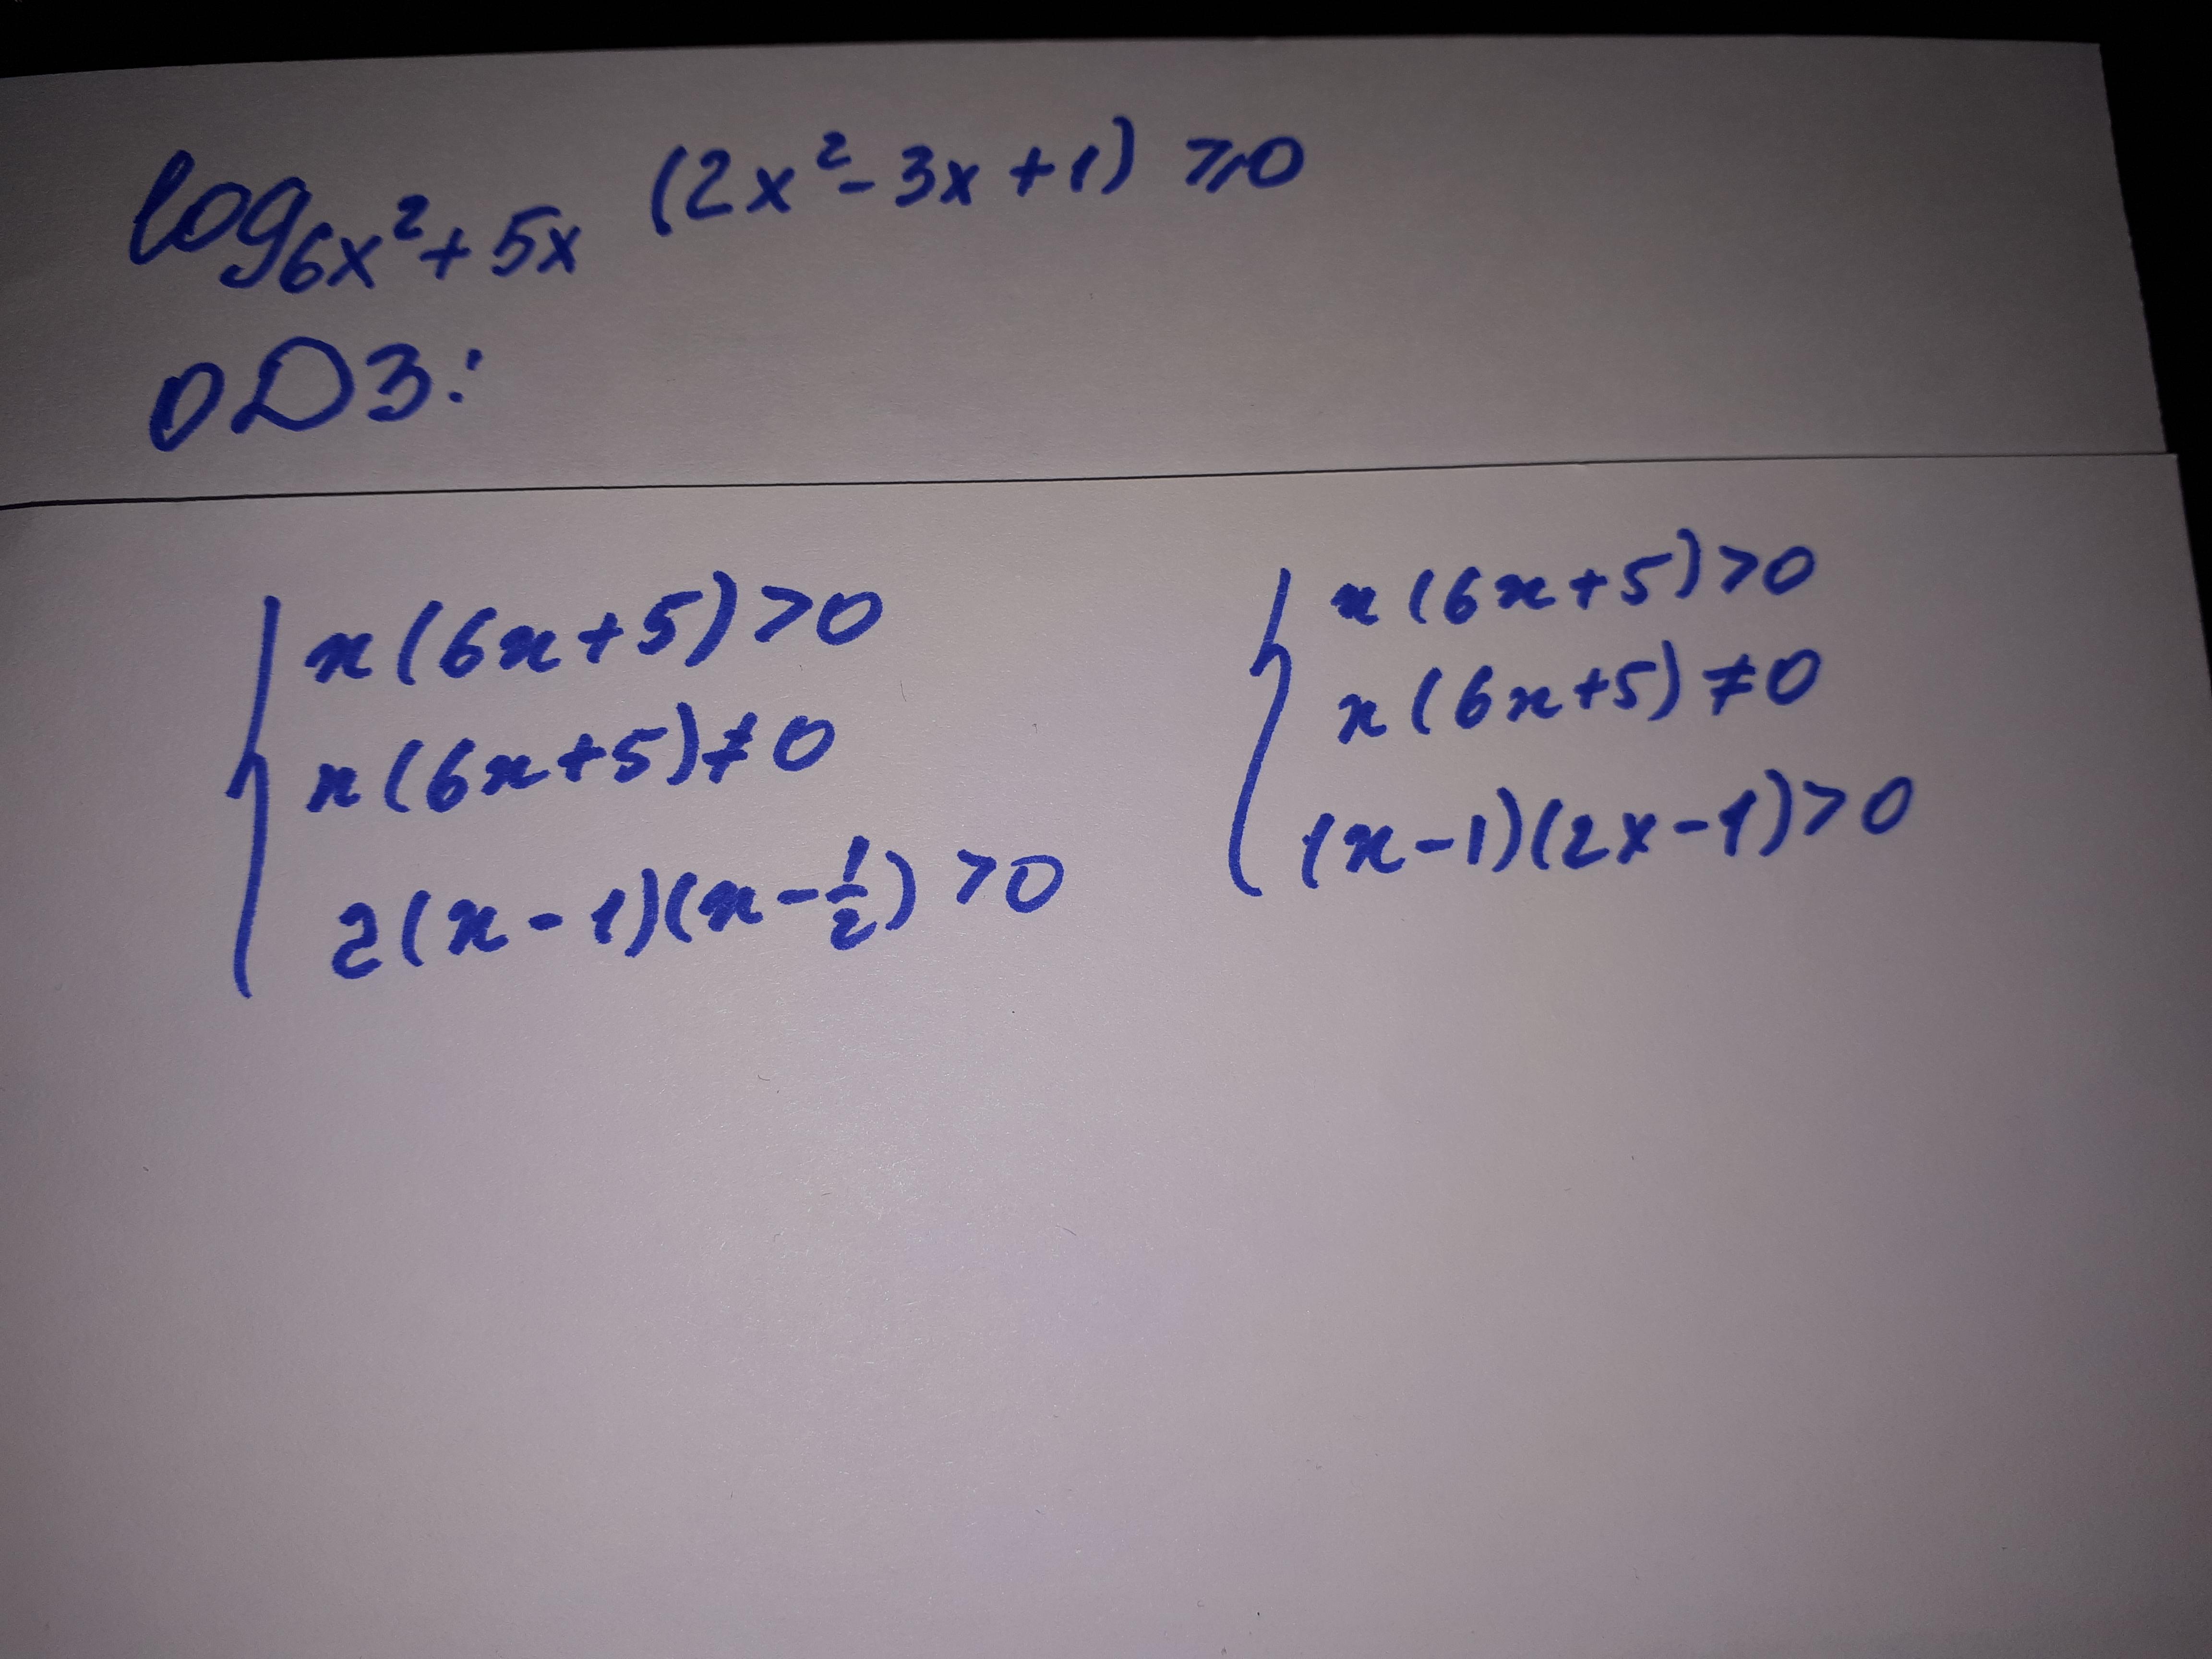 log₆ₓ²₊₅ₓ (2x² - 3x + 1) ⩾ 0
ОДЗ:
x(6x+5)>0
x(6x+5)≠0
2(x-1)(x-½)>0
x(6x+5)>0
x(6x+5)≠0
(x-1)(2x-1)>0